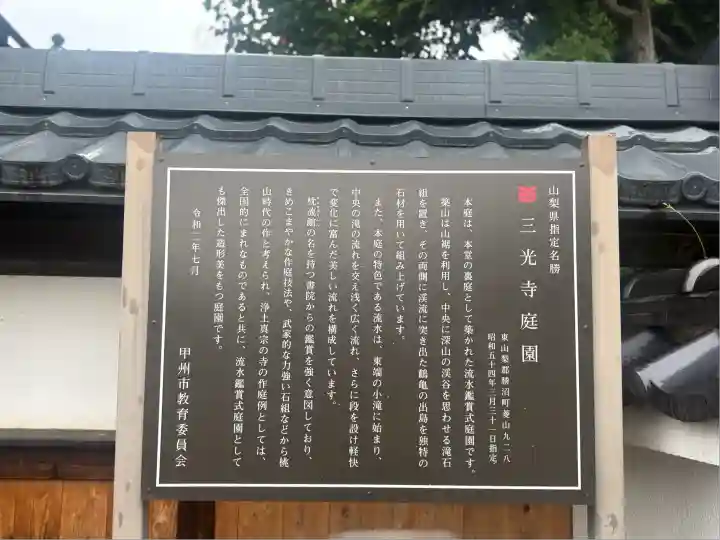 山梨県指定名勝
三光寺庭園
東山梨郡勝沼町菱山九二八
昭和五十四年三月三十一日指定
本庭は、本堂の裏庭として築かれた流水鑑賞式庭園です。
築山は山裾を利用し、中央に深山の渓谷を思わせる滝石
組を置き、その両側に渓流に突き出た鶴亀の出島を独特の
石材を用いて組み上げています。
また、本庭の特色である流水は、東端の小滝に始まり、
中央の滝の流れを交え浅く広く流れ、さらに段を設け軽快
で変化に富んだ美しい流れを構成しています。
枕流館の名を持つ書院からの鑑賞を強く意図しており、
きめこまやかな作庭技法や、武家的な力強い石組などから桃
山時代の作と考えられ、浄土真宗の寺の作庭例としては、
全国的にまれなものであると共に、流水鑑賞式庭園として
も傑出した造形美をもつ庭園です。
令和二年七月
甲州市教育委員会